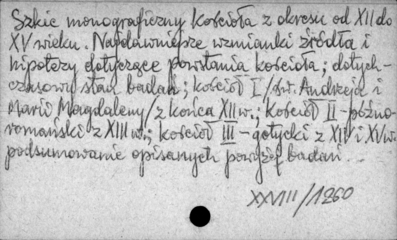 Szkic monograficzny kościoła z okresu od XII do
XV wieku. Najdawniejsze wzmianki źródła i
hipotezy dotyczące powstania kościoła; dotych-
czasowy stan badań; kościół I /św. Andrzeja i
Marii Magdaleny/ z końca XII w.; kościół II - późno-
romański z XIII w.; kościół III - gotycki z XIV i XV w.
podsumowanie opisanych powyżej badań...
XXVIII/1260